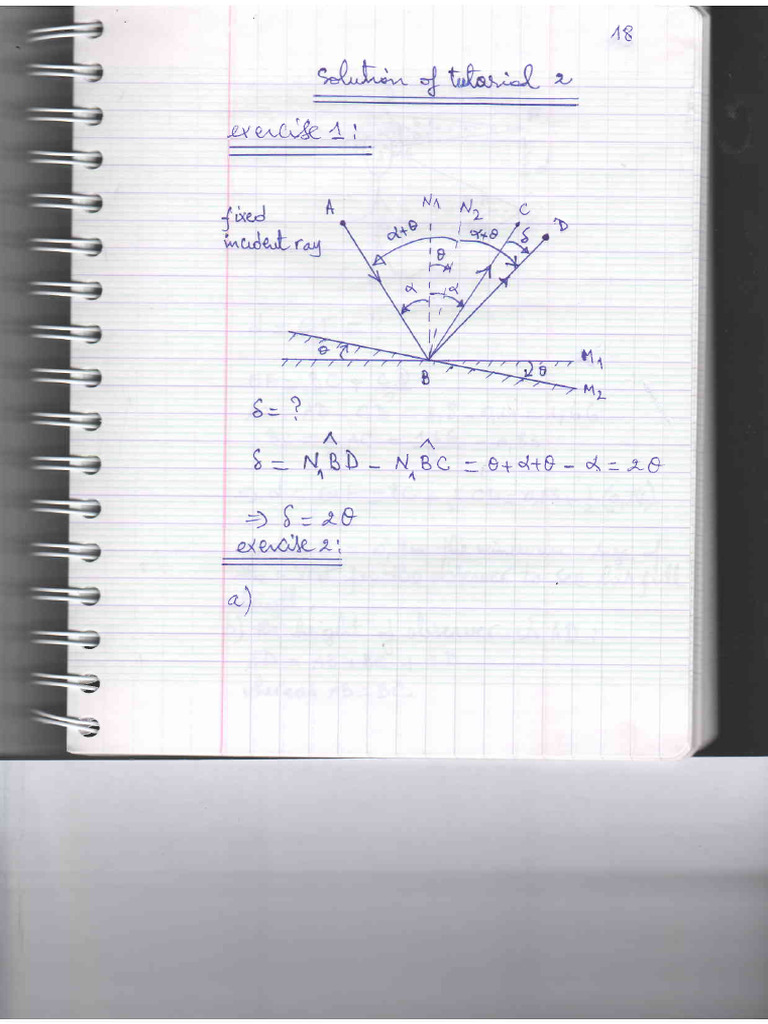 18
Solution of tutorial 2
exercise 1:
fixed
incident ray
A
N1
N2
C
D
α+θ
α+θ
δ
θ
α
α
θ
B
θ
M1
M2
δ = ?
δ = N₁B̂D − N₁B̂C = θ+α+θ − α = 2θ
⇒ δ = 2θ
exercise 2:
a)